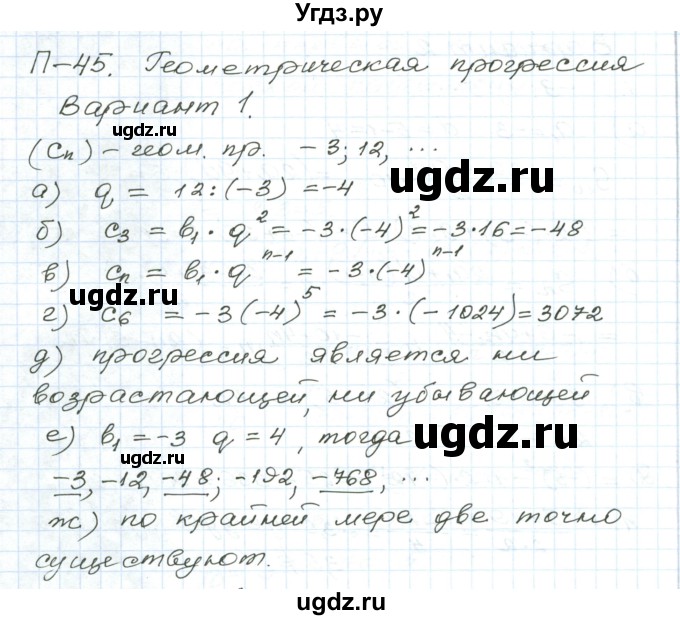 Угдз.ру
П-45. Геометрическая прогрессия
Вариант 1.
ugdz.ru
(cₙ) - геом. пр. -3; 12, ...
ugdz.ru
а) q = 12 : (-3) = -4
б) c₃ = b₁ · q² = -3 · (-4)² = -3 · 16 = -48
в) cₙ = b₁ · qⁿ⁻¹ = -3 · (-4)ⁿ⁻¹
ugdz.ru
г) c₆ = -3(-4)⁵ = -3 · (-1024) = 3072
д) прогрессия является ни
возрастающей, ни убывающей
е) b₁ = -3 q = 4, тогда
ugdz.ru
ugdz.ru
-3, -12, -48; -192, -768, ...
ж) по крайней мере две точно
существуют.
ugdz.ru
ugdz.ru